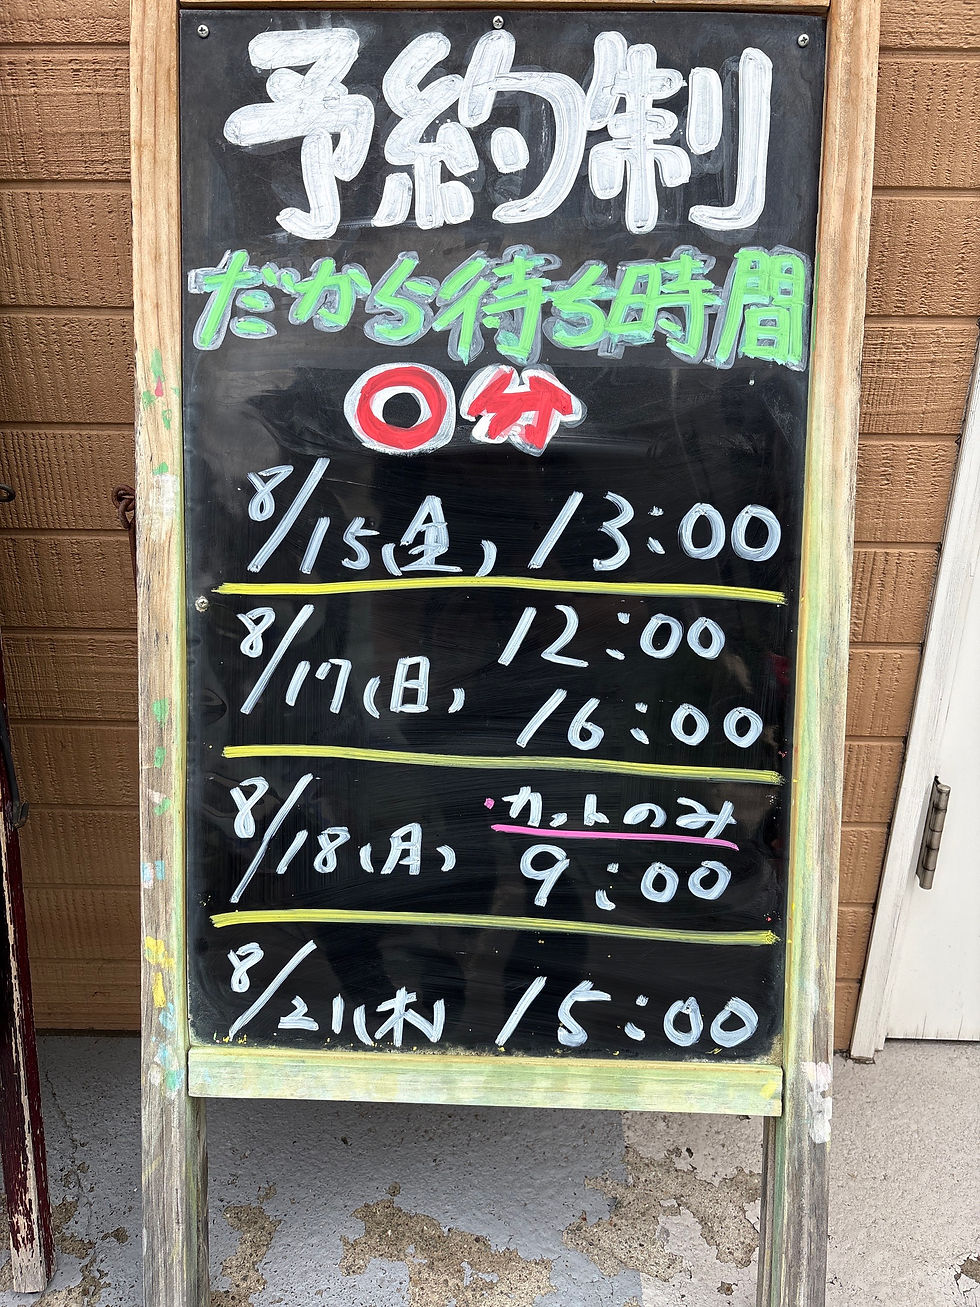 予約制
だから待ち時間
〇分
8/15(金) 13:00
8/17(日) 12:00
16:00
8/18(月) カットのみ
9:00
8/21(木) 15:00